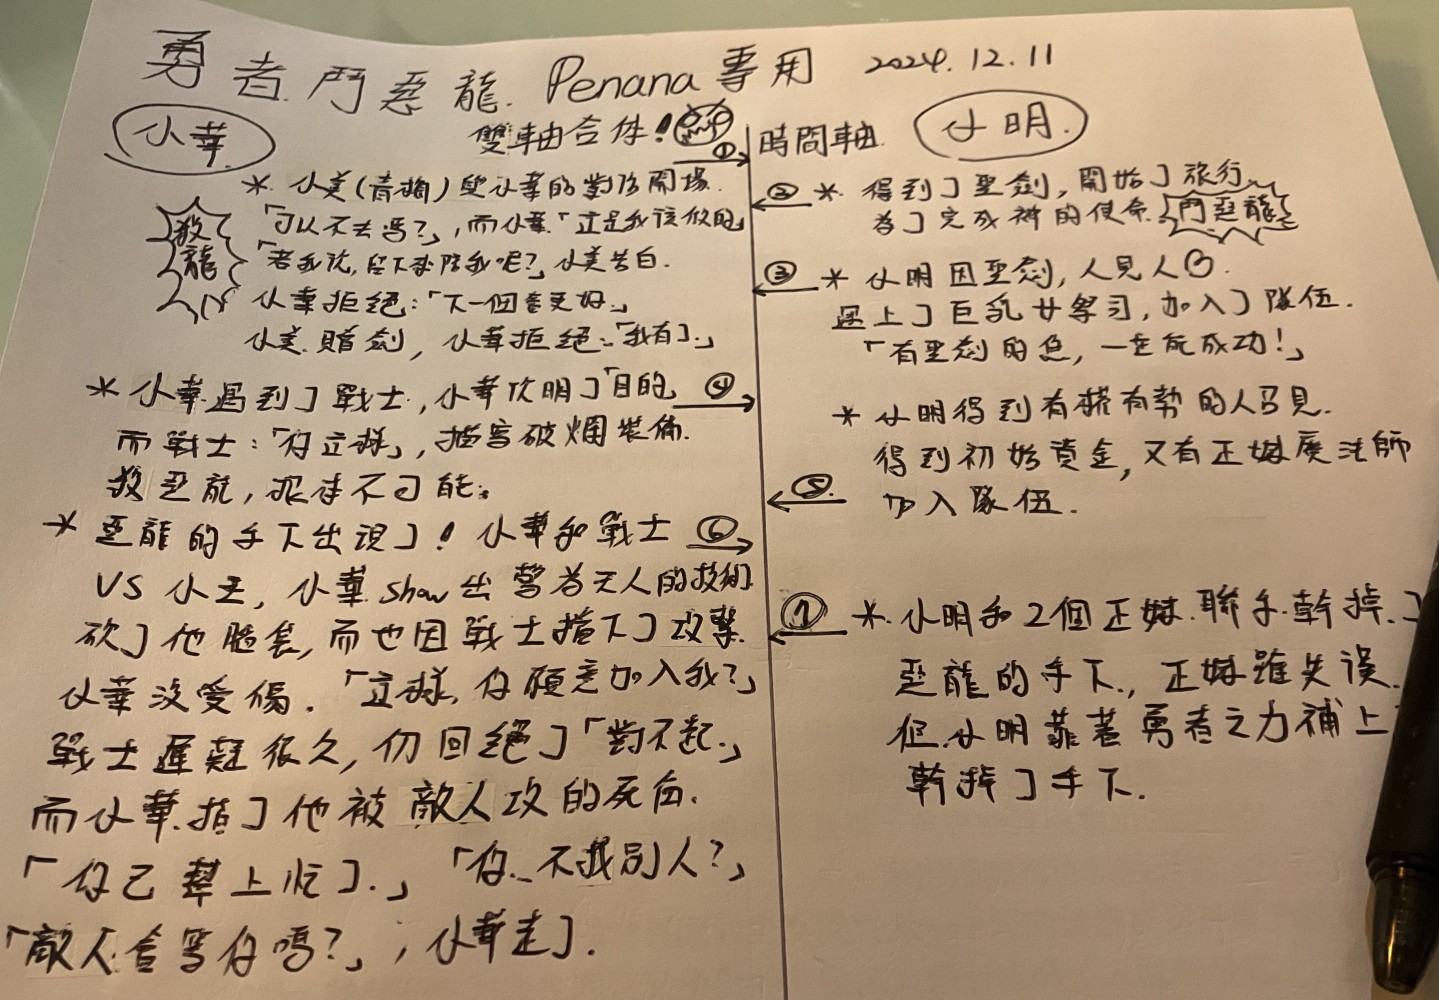 勇者鬥惡龍 Penana專用 2024.12.11
小華
雙軸合併!
時間軸
小明
①
* 小美(青梅)與小華的對話開場.
殺龍
「可以不去嗎?」,而小華「這是我該做的」
「若我說,留下來陪我呢?」小美告白.
小華拒絕:「下一個會更好.」
小美贈劍,小華拒絕:「我有了.」
* 小華遇到了戰士,小華說明了目的
④
而戰士:「你這樣」,描寫破爛裝備.
殺惡龍,根本不可能.
* 惡龍的手下出現了!小華和戰士
⑥
VS 小王,小華show出驚為天人的技術
砍了他腦袋,而也因戰士擋下了攻擊.
小華沒受傷.「這樣,你願意加入我?」
戰士遲疑很久,仍回絕了「對不起.」
而小華指了他被敵人攻的死角.
「你已幫上忙了.」「你…不找別人?」
「敵人會等你嗎?」,小華走了.
② * 得到了聖劍,開始了旅行
為了完成神的使命.
鬥惡龍
③ * 小明因聖劍,人見人
遇上了巨乳女祭司,加入了隊伍.
「有聖劍的您,一定能成功!」
* 小明得到有權有勢的人召見.
得到初始資金,又有正妹魔法師
⑤ 加入隊伍.
⑦ * 小明和2個正妹聯手幹掉了
惡龍的手下,正妹雖失誤.
但小明靠著勇者之力補上
幹掉了手下.